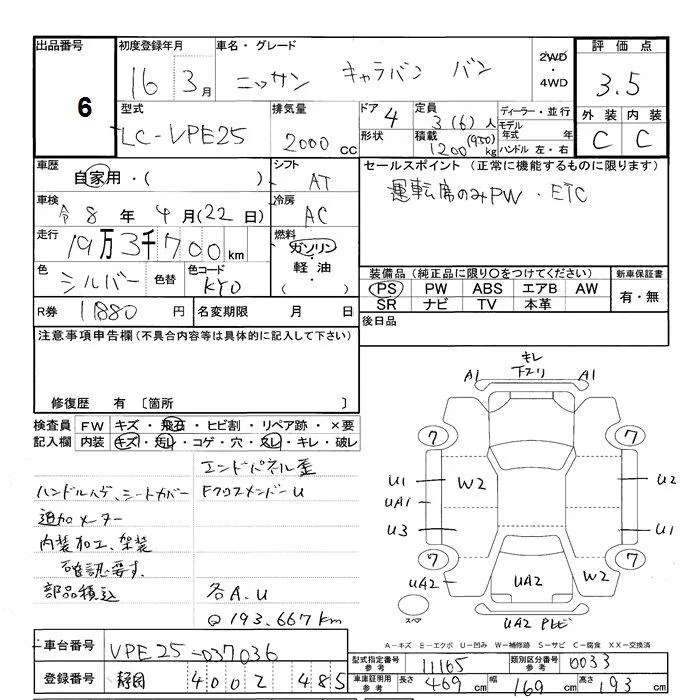 出品番号 初度登録年月 車名・グレード 2WD・4WD 評価点
6 16 3月 ニッサン キャラバン バン 3.5
外装 内装
C C
型式 排気量 ドア 定員 ディーラー・並行
LC-VPE25 2000cc 4 3(6)人 モデル年式 年
形状 積載 1200(950)kg ハンドル 左・右
車歴 自家用・( ) シフト AT
セールスポイント(正常に機能するものに限ります)
運転席のみPW・ETC
車検 令8年4月(22日) 冷房 AC
走行 19万3千700km 燃料 ガソリン・軽油・( )
色 シルバー 色替 色コード KY0
装備品(純正品に限り○をつけてください) 新車保証書
PS PW ABS エアB AW 有・無
SR ナビ TV 本革
R券 11880円 名変期限 月 日 後日品
注意事項申告欄(不具合内容等は具体的に記入して下さい)
修復歴 有〔箇所 〕
検査員記入欄 FW キズ・飛石・ヒビ割・リペア跡・×要
内装 キズ・汚れ・コゲ・穴・スレ・キレ・破レ
エンドパネル歪
ハンドルハゲ、シートカバー FクロスメンバーU
追加メーター
内装加工、架装
確認要す.
部品積込 各A.U
Q 193.667km
キレ
下スリ
A1 A1
7 7
U1 W2 U2
UA1
U3 U1
7 7
UA2 UA2 W2
スペア
UA2 PしU
A-キズ E-エクボ U-凹み W-補修跡 S-サビ C-腐食 XX-交換済
車台番号 VPE25-037036
型式指定番号 参考 11165 類別区分番号 参考 0033
登録番号 静岡 400 2 485
車庫証明用 参考 長さ 469cm 幅 169cm 高さ 193cm